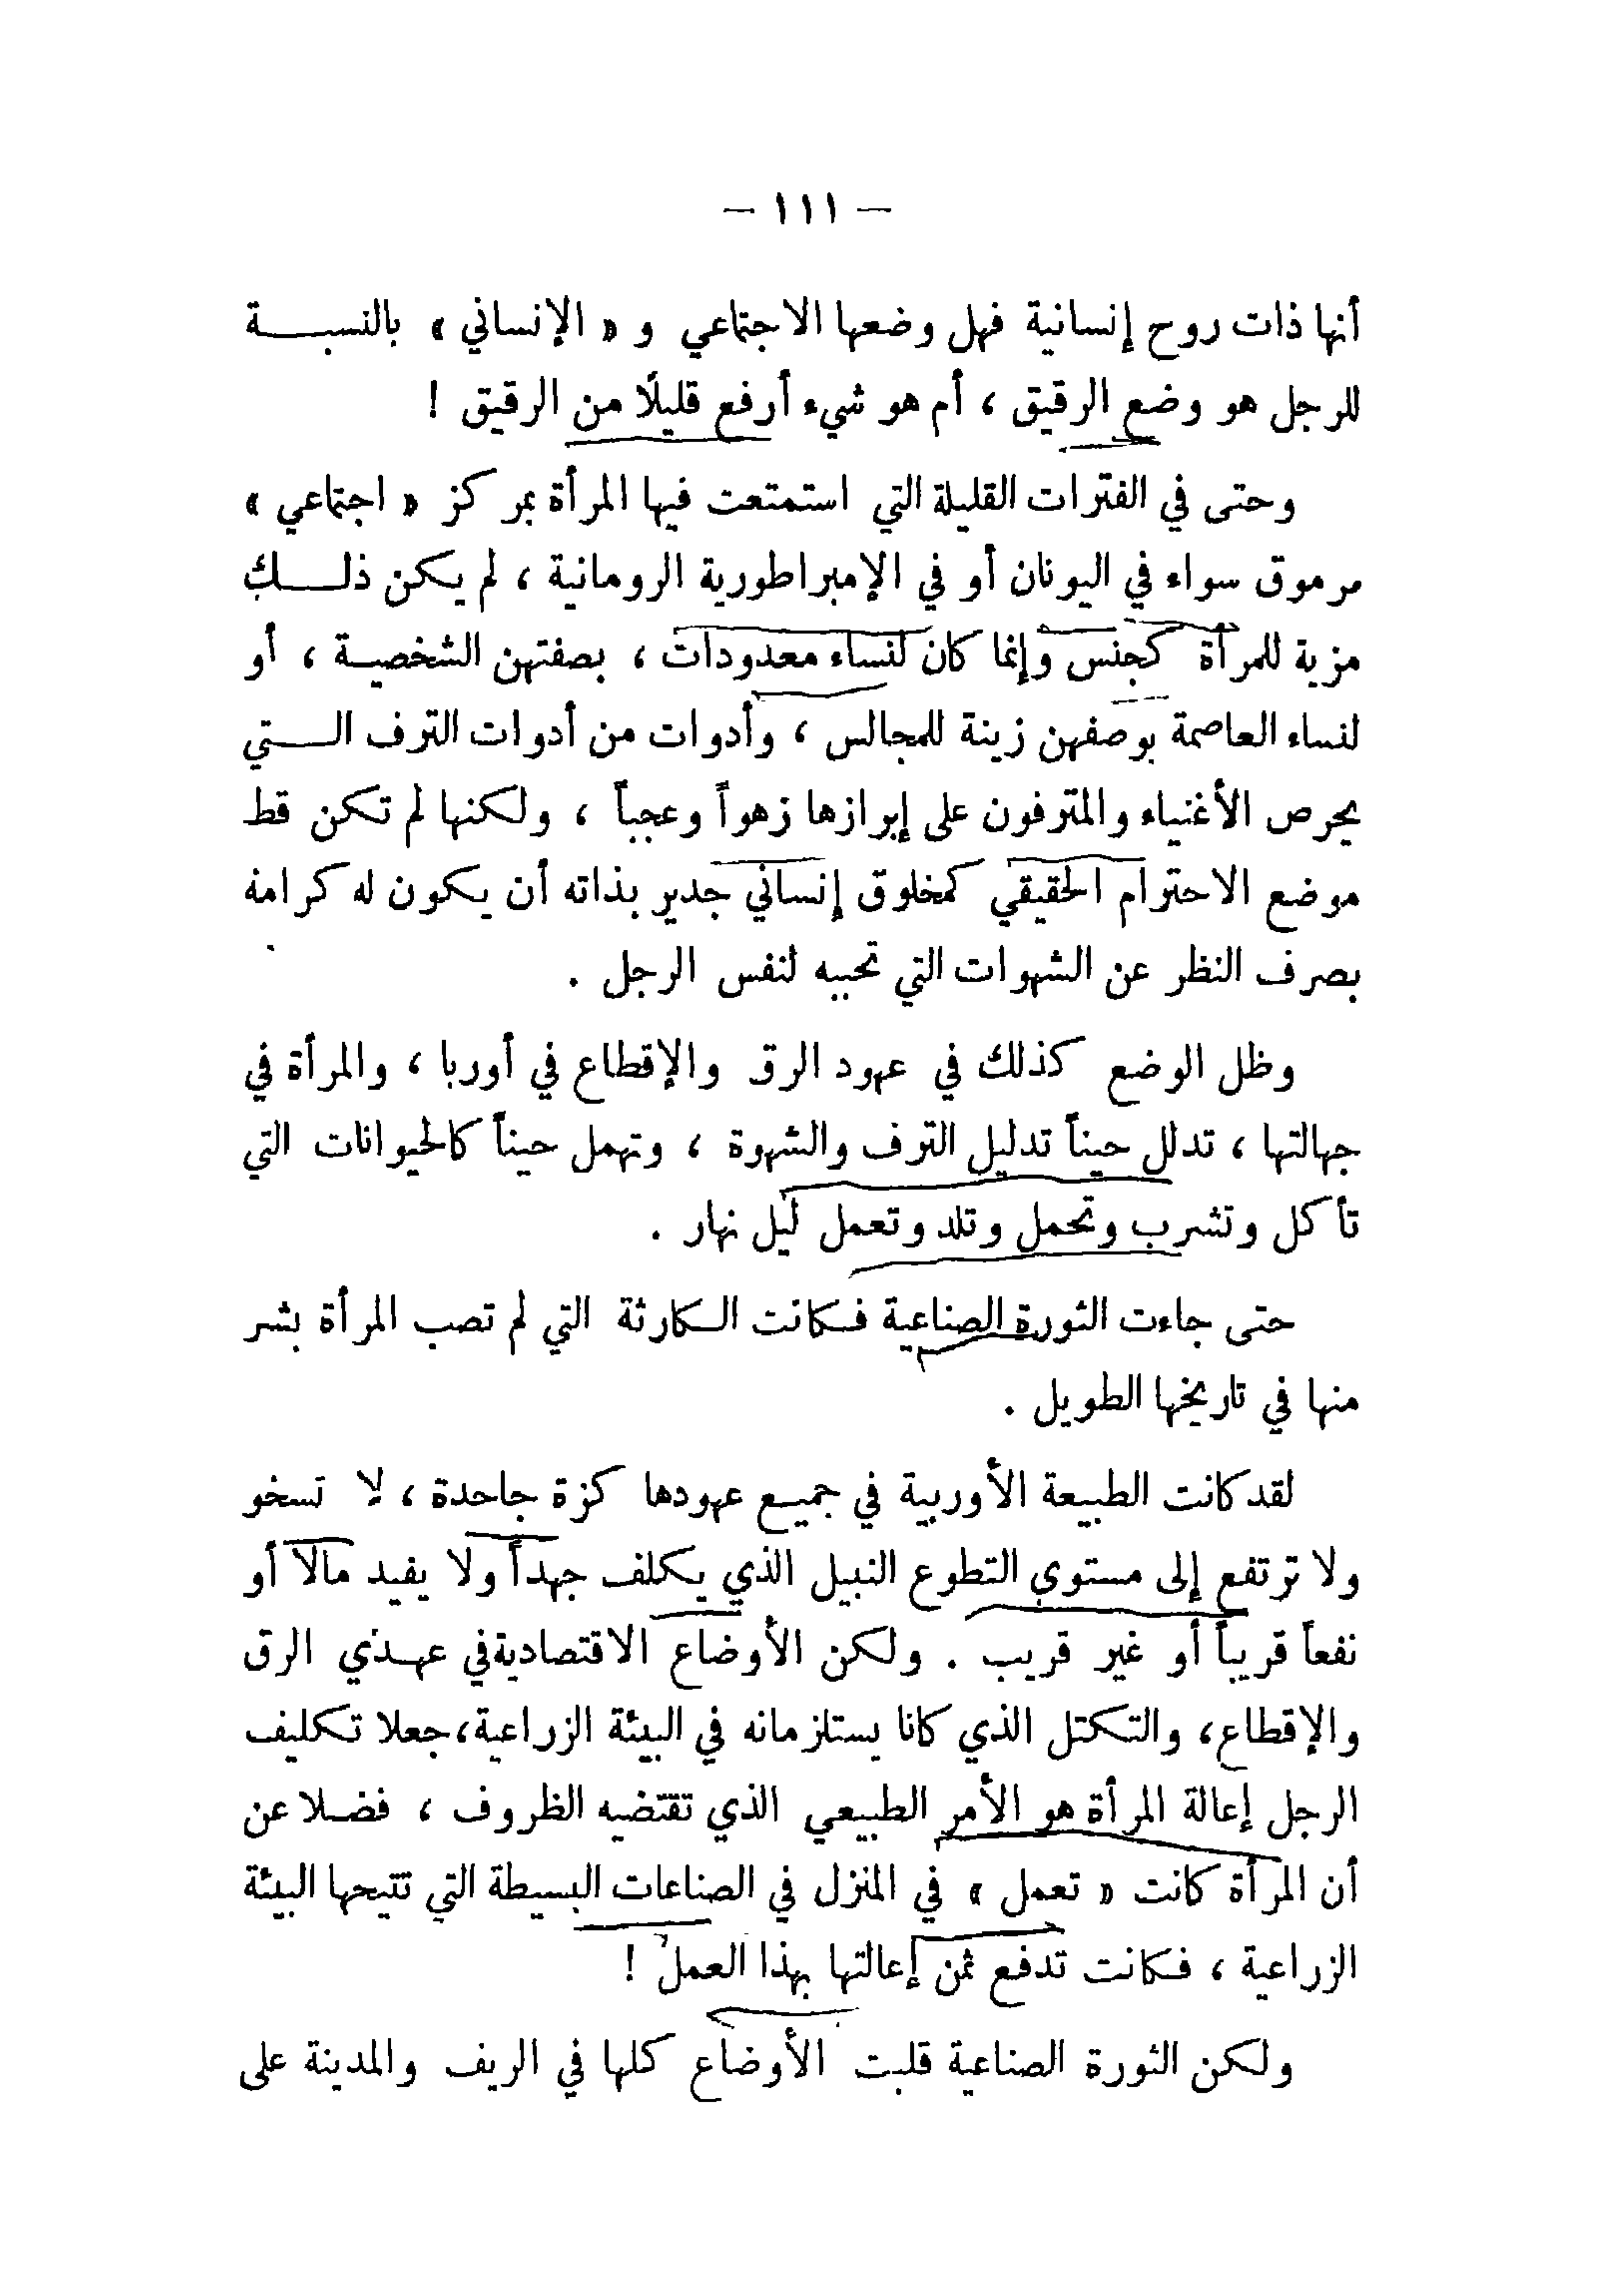 — ١١١ —
أنها ذات روح إنسانية فهل وضعها الاجتماعي و « الإنساني » بالنسبة
للرجل هو وضع الرقيق ، أم هو شيء أرفع قليلًا من الرقيق !
وحتى في الفترات القليلة التي استمتعت فيها المرأة بمركز « اجتماعي »
مرموق سواء في اليونان أو في الإمبراطورية الرومانية ، لم يكن ذلك
مزية للمرأة كجنس وإنما كان لنساء معدودات ، بصفتهن الشخصية ، أو
لنساء العاصمة بوصفهن زينة للمجالس ، وأدوات من أدوات الترف التي
يحرص الأغنياء والمترفون على إبرازها زهواً وعجباً ، ولكنها لم تكن قط
موضع الاحترام الحقيقي كمخلوق إنساني جدير بذاته أن يكون له كرامة
بصرف النظر عن الشهوات التي تحببه لنفس الرجل .
وظل الوضع كذلك في عهود الرق والإقطاع في أوربا ، والمرأة في
جهالتها ، تدلل حيناً تدليل الترف والشهوة ، وتهمل حيناً كالحيوانات التي
تأكل وتشرب وتحمل وتلد وتعمل ليل نهار .
حتى جاءت الثورة الصناعية فكانت الكارثة التي لم تصب المرأة بشر
منها في تاريخها الطويل .
لقد كانت الطبيعة الأوربية في جميع عهودها كزة جاحدة ، لا تسخو
ولا ترتفع إلى مستوى التطوع النبيل الذي يكلف جهداً ولا يفيد مالاً أو
نفعاً قريباً أو غير قريب . ولكن الأوضاع الاقتصادية في عهدي الرق
والإقطاع، والتكتل الذي كانا يستلزمانه في البيئة الزراعية، جعلا تكليف
الرجل إعالة المرأة هو الأمر الطبيعي الذي تقتضيه الظروف ، فضلا عن
أن المرأة كانت « تعمل » في المنزل في الصناعات البسيطة التي تتيحها البيئة
الزراعية ، فكانت تدفع ثمن إعالتها بهذا العمل !
ولكن الثورة الصناعية قلبت الأوضاع كلها في الريف والمدينة على